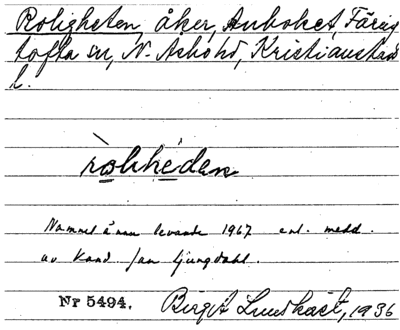 Roligheten, åker, Anboket, Färing
tofta sn, N. Åsbo hd, Kristianstads
l.
roliheden
Namnet ännu levande 1967 enl. medd.
av kand. Jan Ljungdahl.
Nr 5494. Birgit Lundkvist, 1936